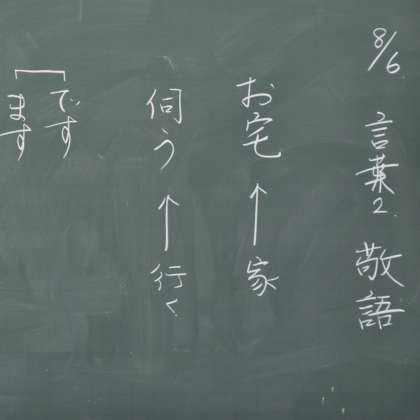 8/6 言葉2. 敬語
お宅 ← 家
伺う ← 行く
です
ます